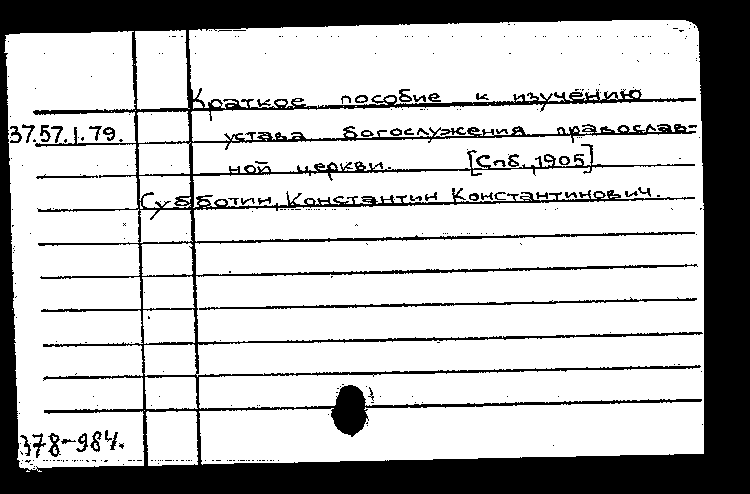 Краткое пособие к изучению
37.57.1.79. устава богослужения православ=
ной церкви. [Спб., 1905].
Субботин, Константин Константинович.
378-984.